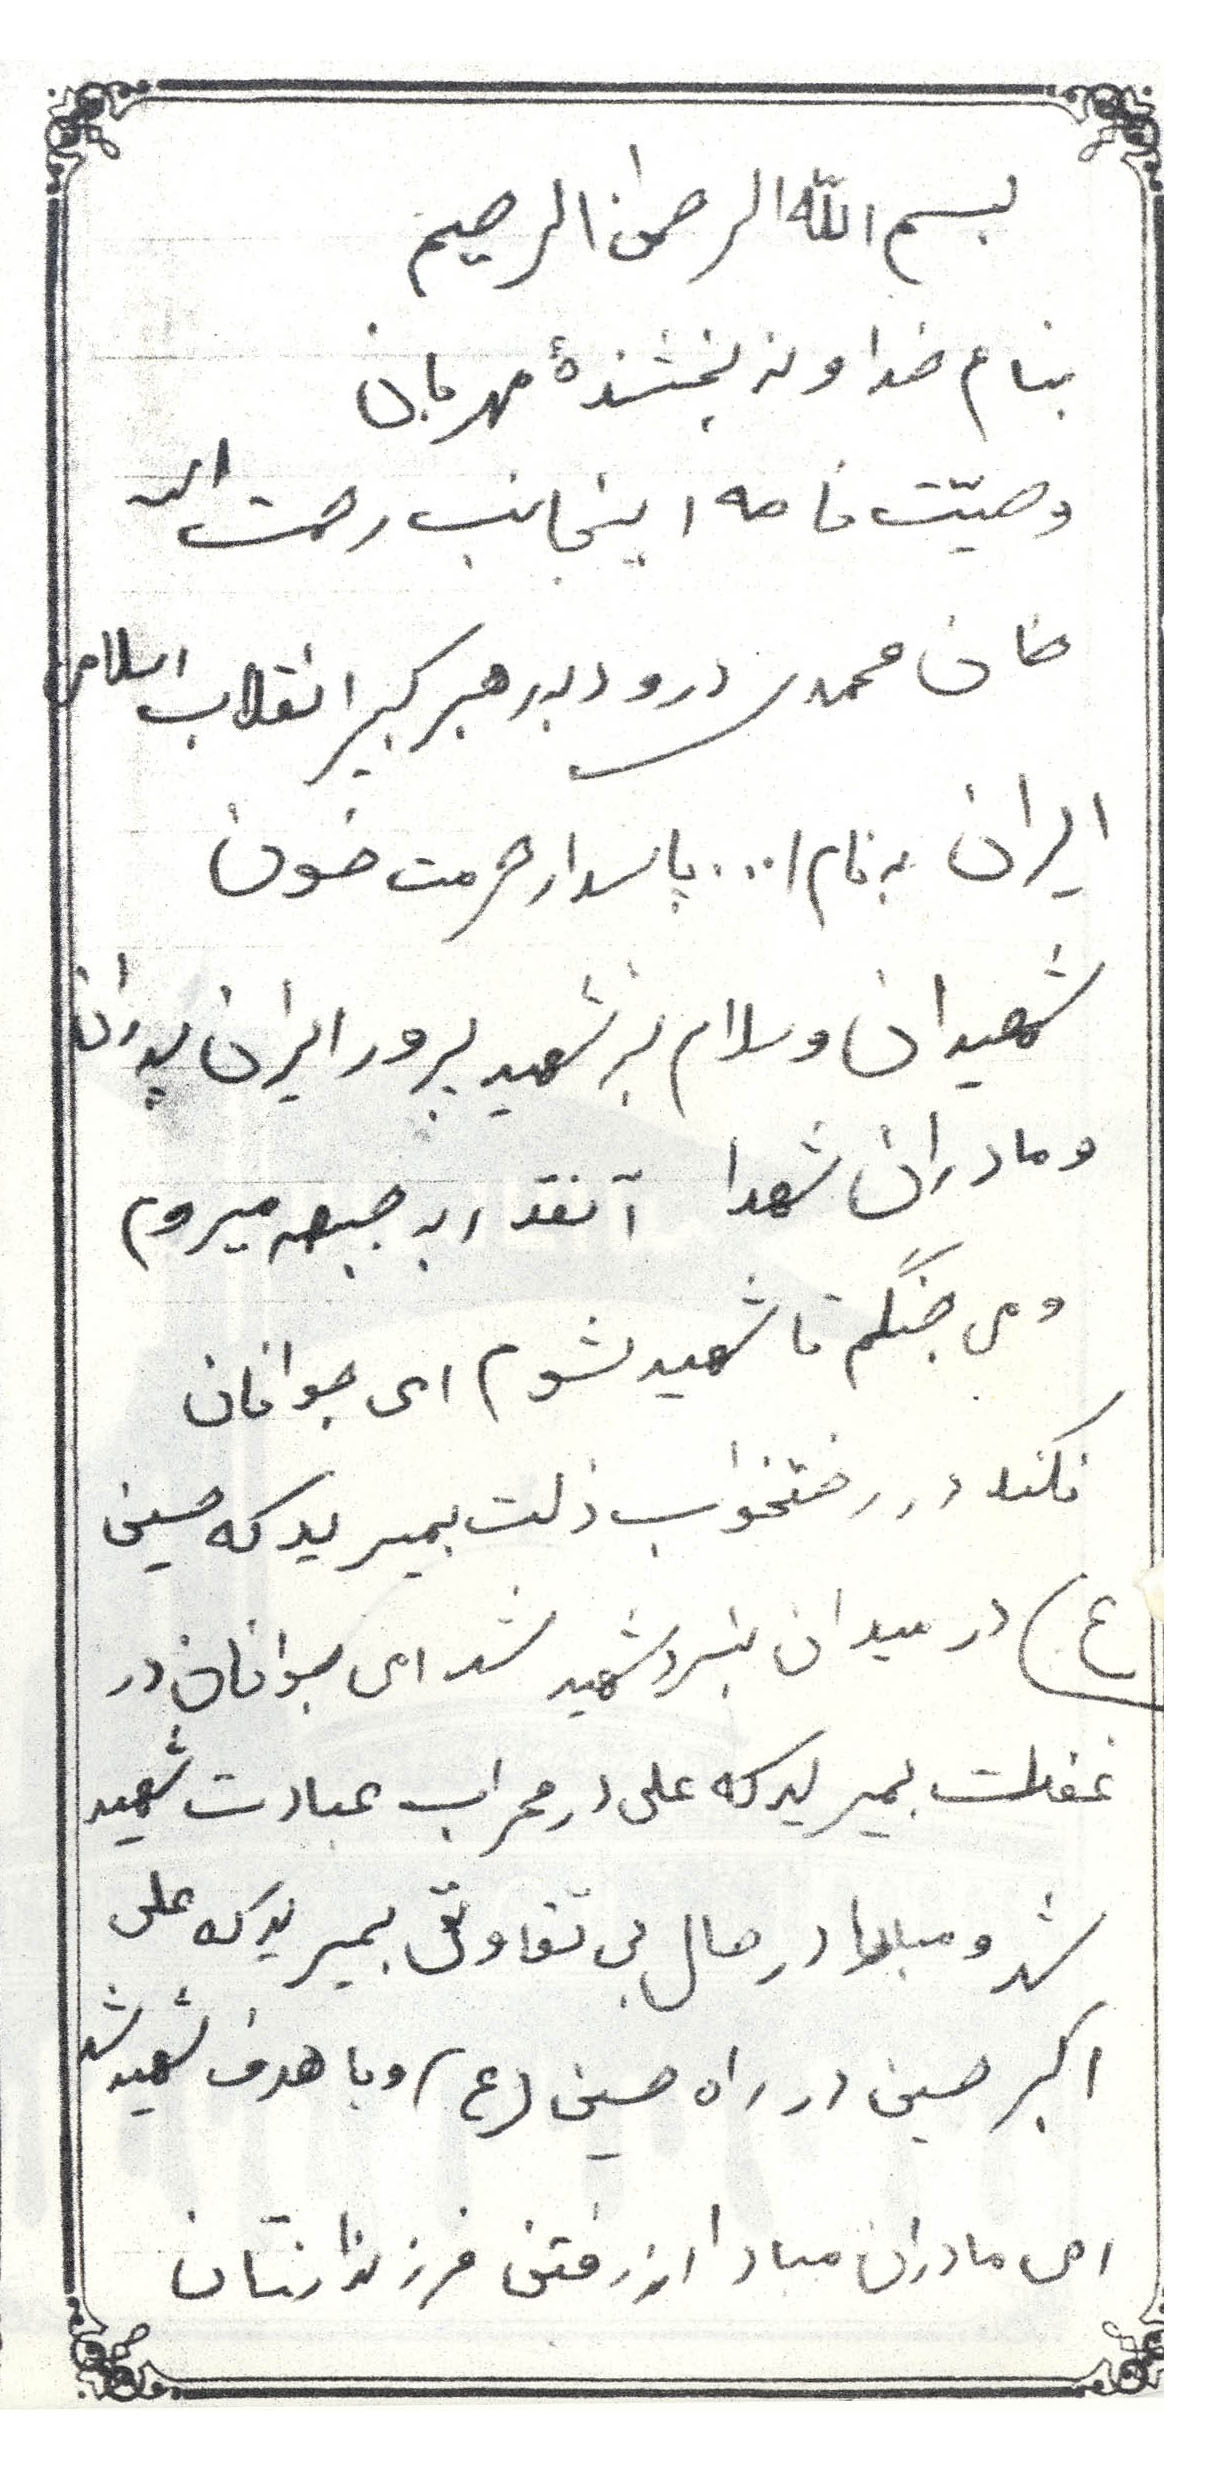 بسم الله الرحمن الرحیم
بنام خداوند بخشندهٔ مهربان
وصیّت نامه اینجانب رحمت اله
خان محمدی درود بر رهبر کبیر انقلاب اسلامی
ایران به نام ا... پاسدار حرمت خون
شهیدان و سلام بر شهید پرور ایران پدران
و مادران شهدا آنقدر به جبهه میروم
و می جنگم تا شهید شوم ای جوانان
نکند در رختخواب ذلت بمیرید که حسین
(ع) در میدان نبرد شهید شد ای جوانان در
غفلت بمیرید که علی در محراب عبادت شهید
شد و مبادا در حال بی تفاوتی بمیرید که علی
اکبر حسین در راه حسین (ع) و با هدف شهید شد
ای مادران مبادا از رفتن فرزندانتان